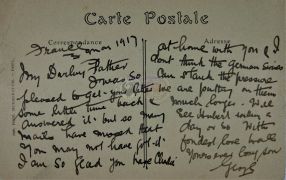 Carte Postale
Correspondance
Adresse
France 1917
My Darling Father
I was so
pleased to get your letter
some little time back &
answered it. but so many
mails have missed that
you may not have got it.
I am so glad you have
at home with you & I
don't think the German lines
can stand the pressure
we are putting on them
much longer. Will
see Hubert in a
day or so With
fondest love
Your ever loving son